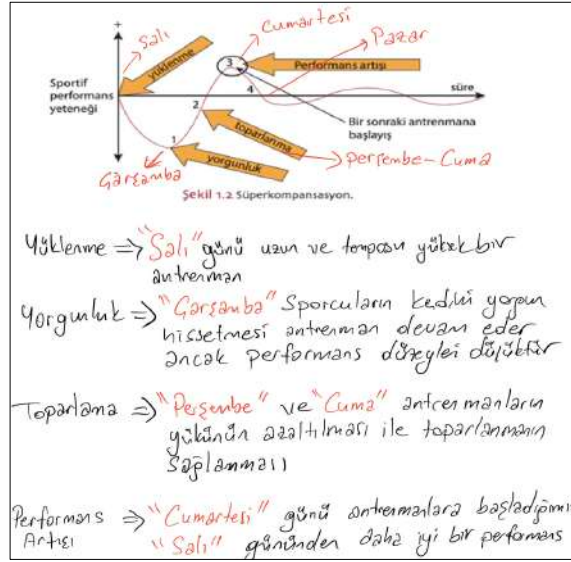 Cumartesi
+
Salı
Pazar
yüklenme
3
Performans artışı
Sportif
performans
yeteneği
4
süre
2
Bir sonraki antrenmana
başlayış
toparlanma
1
yorgunluk
Perşembe-Cuma
Çarşamba
Şekil 1.2 Süperkompansasyon.
Yüklenme => "Salı" günü uzun ve temposu yüksek bir
antrenman
Yorgunluk => "Çarşamba" Sporcuların kedini yorgun
hissetmesi antrenman devam eder
ancak performans düzeylei düşüktür
Toparlama => "Perşembe" ve "Cuma" antrenmanların
yükünün azaltılması ile toparlanmanın
sağlanması
Performans => "Cumartesi" günü antrenmanlara başladığımız
Artışı "Salı" gününden daha iyi bir performans